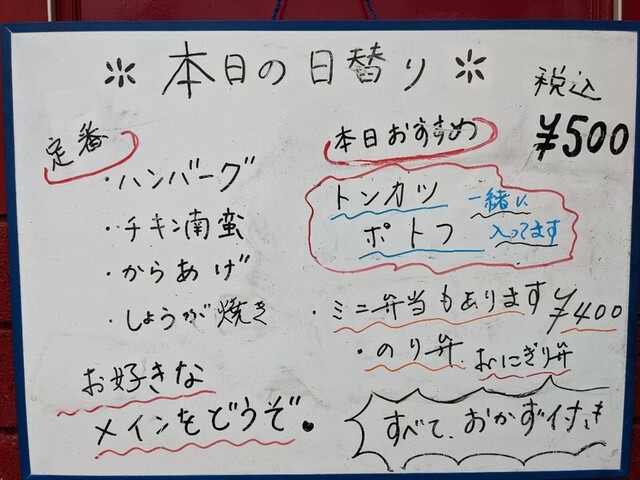 * 本日の日替り *
税込
¥500
定番
・ハンバーグ
・チキン南蛮
・からあげ
・しょうが焼き
お好きな
メインをどうぞ。
本日おすすめ
トンカツ
ポトフ
一緒に
入ってます
・ミニ弁当もあります ¥400
・のり弁 おにぎり弁
すべて、おかず付き